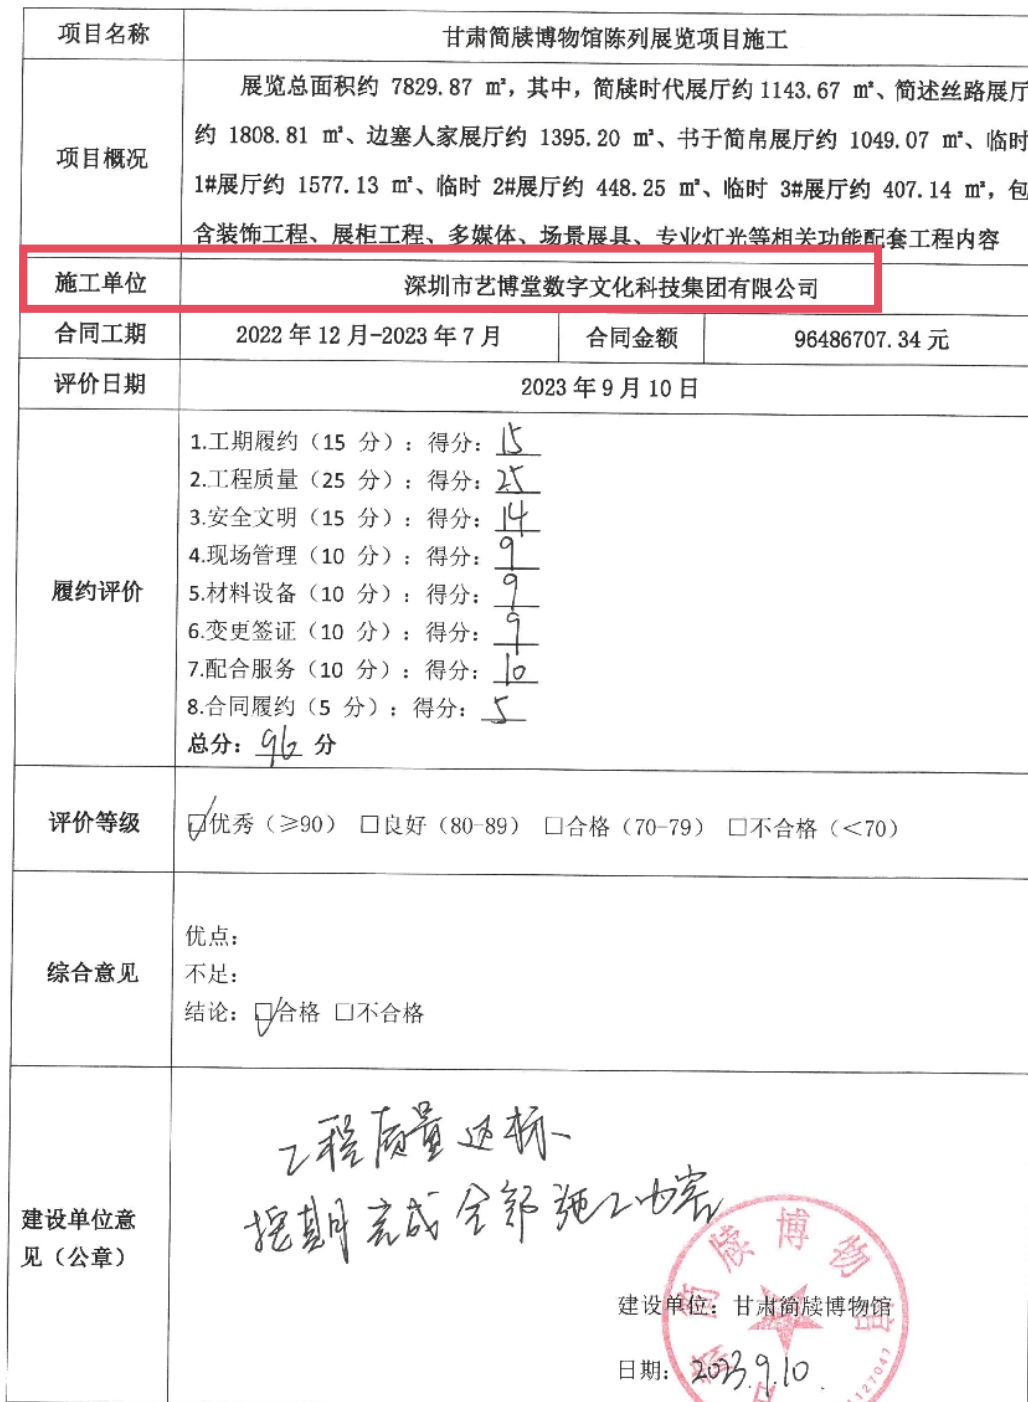 项目名称
甘肃简牍博物馆陈列展览项目施工
项目概况
展览总面积约 7829.87 ㎡，其中，简牍时代展厅约 1143.67 ㎡、简述丝路展厅
约 1808.81 ㎡、边塞人家展厅约 1395.20 ㎡、书于简帛展厅约 1049.07 ㎡、临时
1#展厅约 1577.13 ㎡、临时 2#展厅约 448.25 ㎡、临时 3#展厅约 407.14 ㎡，包
含装饰工程、展柜工程、多媒体、场景展具、专业灯光等相关功能配套工程内容
施工单位
深圳市艺博堂数字文化科技集团有限公司
合同工期
2022 年 12 月-2023 年 7 月
合同金额
96486707.34 元
评价日期
2023 年 9 月 10 日
履约评价
1.工期履约（15 分）：得分：15
2.工程质量（25 分）：得分：25
3.安全文明（15 分）：得分：14
4.现场管理（10 分）：得分：9
5.材料设备（10 分）：得分：9
6.变更签证（10 分）：得分：9
7.配合服务（10 分）：得分：10
8.合同履约（5 分）：得分：5
总分：96 分
评价等级
☑优秀（≥90） □良好（80-89） □合格（70-79） □不合格（＜70）
综合意见
优点：
不足：
结论：☑合格 □不合格
建设单位意
见（公章）
工程质量达标、
按期完成全部施工内容
建设单位：甘肃简牍博物馆
日期：2023.9.10.
简牍博物馆
127047